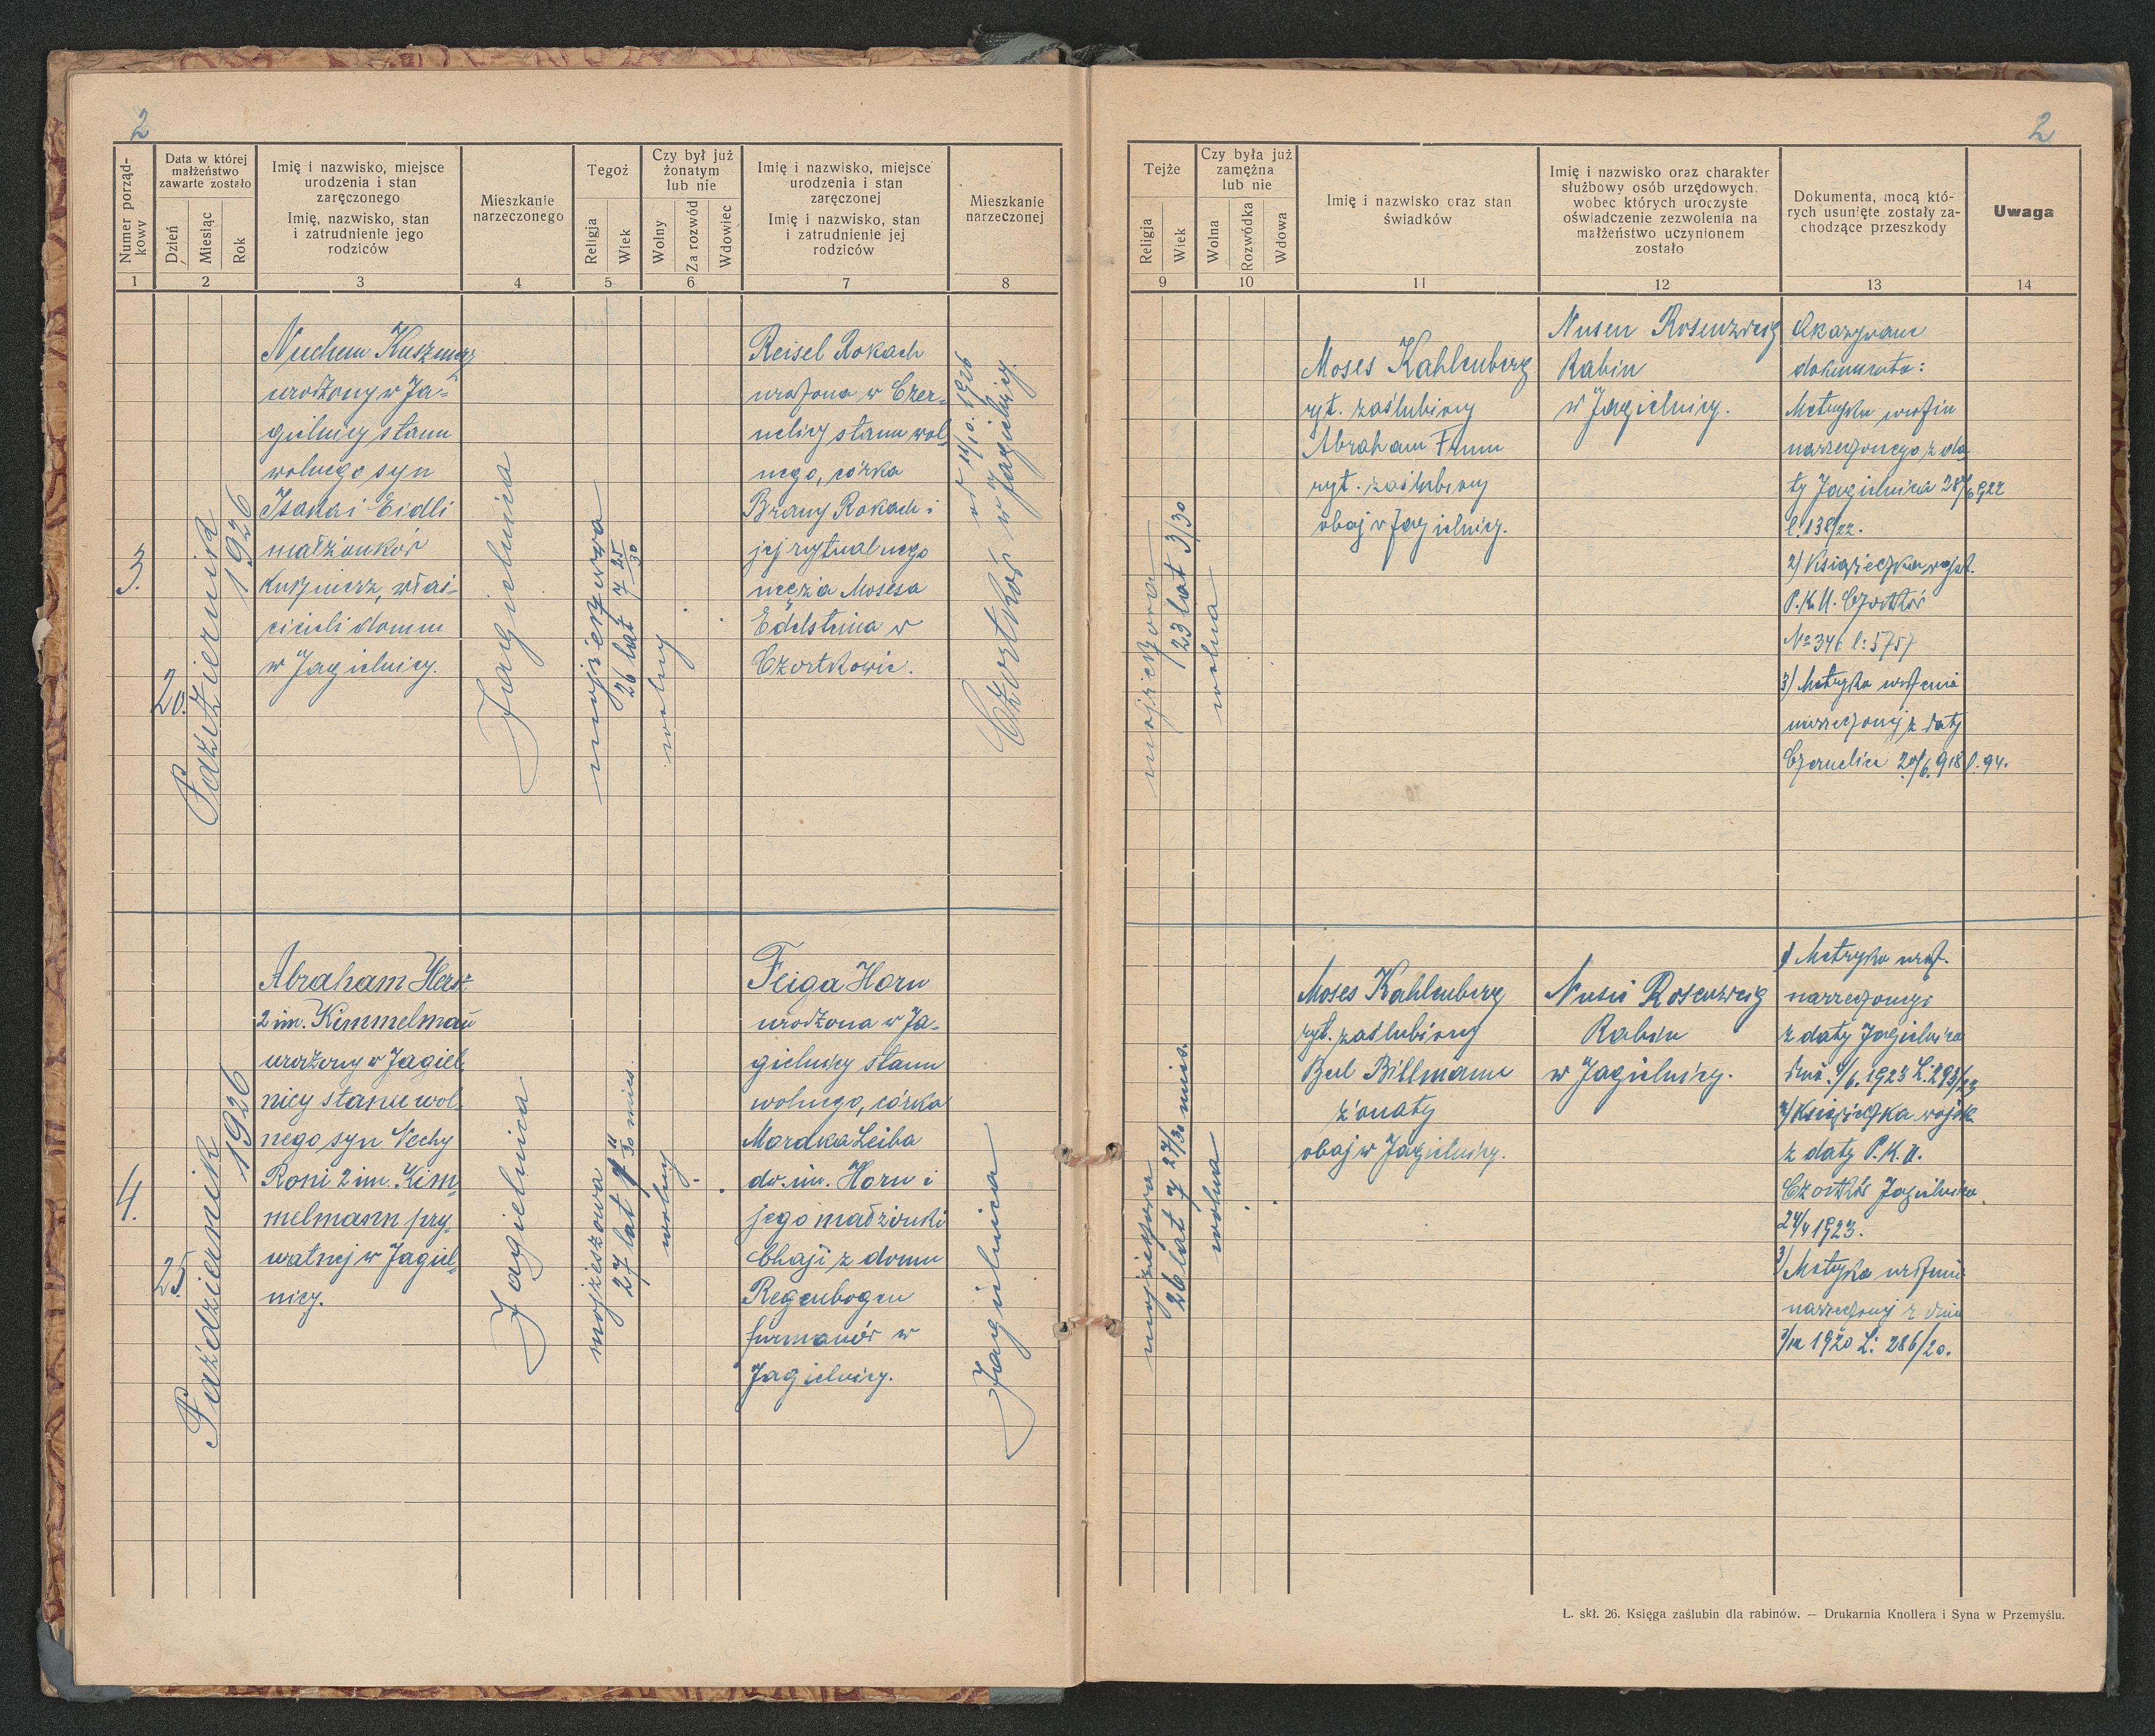 2
Numer porząd-
kowy
Data w której
małżeństwo
zawarte zostało
Dzień
Miesiąc
Rok
Imię i nazwisko, miejsce
urodzenia i stan
zaręczonego
Imię, nazwisko, stan
i zatrudnienie jego
rodziców
Mieszkanie
narzeczonego
Tegoż
Religja
Wiek
Czy był już
żonatym
lub nie
Wolny
Za rozwód
Wdowiec
Imię i nazwisko, miejsce
urodzenia i stan
zaręczonej
Imię i nazwisko, stan
i zatrudnienie jej
rodziców
Mieszkanie
narzeczonej
1
2
3
4
5
6
7
8
3.
20.
Październik
1926
Nuchem Kuszmerz
urodzony w Ja=
gielnicy stanu
wolnego syn
Isaka i Eidli
małżonków
Kuszmerz, właś-
cicieli domu
w Jagielnicy.
Jagielnica
mojżeszowa
26 lat 7 25/30
wolny
Reisel Rokach
urodzona w Czer=
nelicy stanu wol
nego, córka
Brany Rokach i
jej rytualnego
męża Mosesa
Edelsteina w
Czortkowie.
Czortków
w Jagielnicy.
4.
25.
Październik
1926
Abraham Hersz
2 im. Kimmelman
urodzony w Jagiel
nicy stanu wol.
nego syn Nechy
Roni 2 im. Kim=
melmann pry.
watnej w Jagiel=
nicy.
Jagielnica
mojżeszowa
27 lat
wolny.
Feiga Horn
urodzona w Ja-
gielnicy stanu
wolnego, córka
Mordka Leiba
dw. im. Horn i
jego małżonki
Chaji z domu
Regenbogen
furmanów w
Jagielnicy.
Jagielnica
2
Tejże
Religja
Wiek
Czy była już
zamężna
lub nie
Wolna
Rozwódka
Wdowa
Imię i nazwisko oraz stan
świadków
Imię i nazwisko oraz charakter
służbowy osób urzędowych,
wobec których uroczyste
oświadczenie zezwolenia na
małżeństwo uczynionem
zostało
Dokumenta, mocą któ-
rych usunięte zostały za-
chodzące przeszkody
Uwaga
9
10
11
12
13
14
mojżeszowa
23 lat 3/30
wolna
Moses Kahlenberg
ryt. zaślubiony
Abraham
ryt. zaślubiony
obaj w Jagielnicy.
Nusen Rosenzweig
Rabin
w Jagielnicy.
Okazywane
dokumenta:
Metryka urodzin
narzeczonego z da
ty Jagielnica 28/6 922
l. 138/22.
2) Książeczka wojsk.
P.K.U. Czortków
No 346 l: 5757
3) Metryka urodzenia
narzeczonej z daty
Czernelica 20/6. 918 l. 94.
mojżeszowa
26 lat 7 27/30 mies.
wolna
Moses Kahlenberg
ryt. zaślubiony
Berl Billmann
żonaty
obaj w Jagielnicy.
Nusen Rosenzweig
Rabin
w Jagielnicy.
1) Metryka urodz.
narzeczonego
z daty Jagielnica
1923
2) Książeczka wojsk.
z daty P.K.U.
Czortków Jagielnica
24/4 1923.
3) Metryka urodzenia
narzeczonej z dnia
1920 L: 286/20.
L. skł. 26. Księga zaślubin dla rabinów. — Drukarnia Knollera i Syna w Przemyślu.